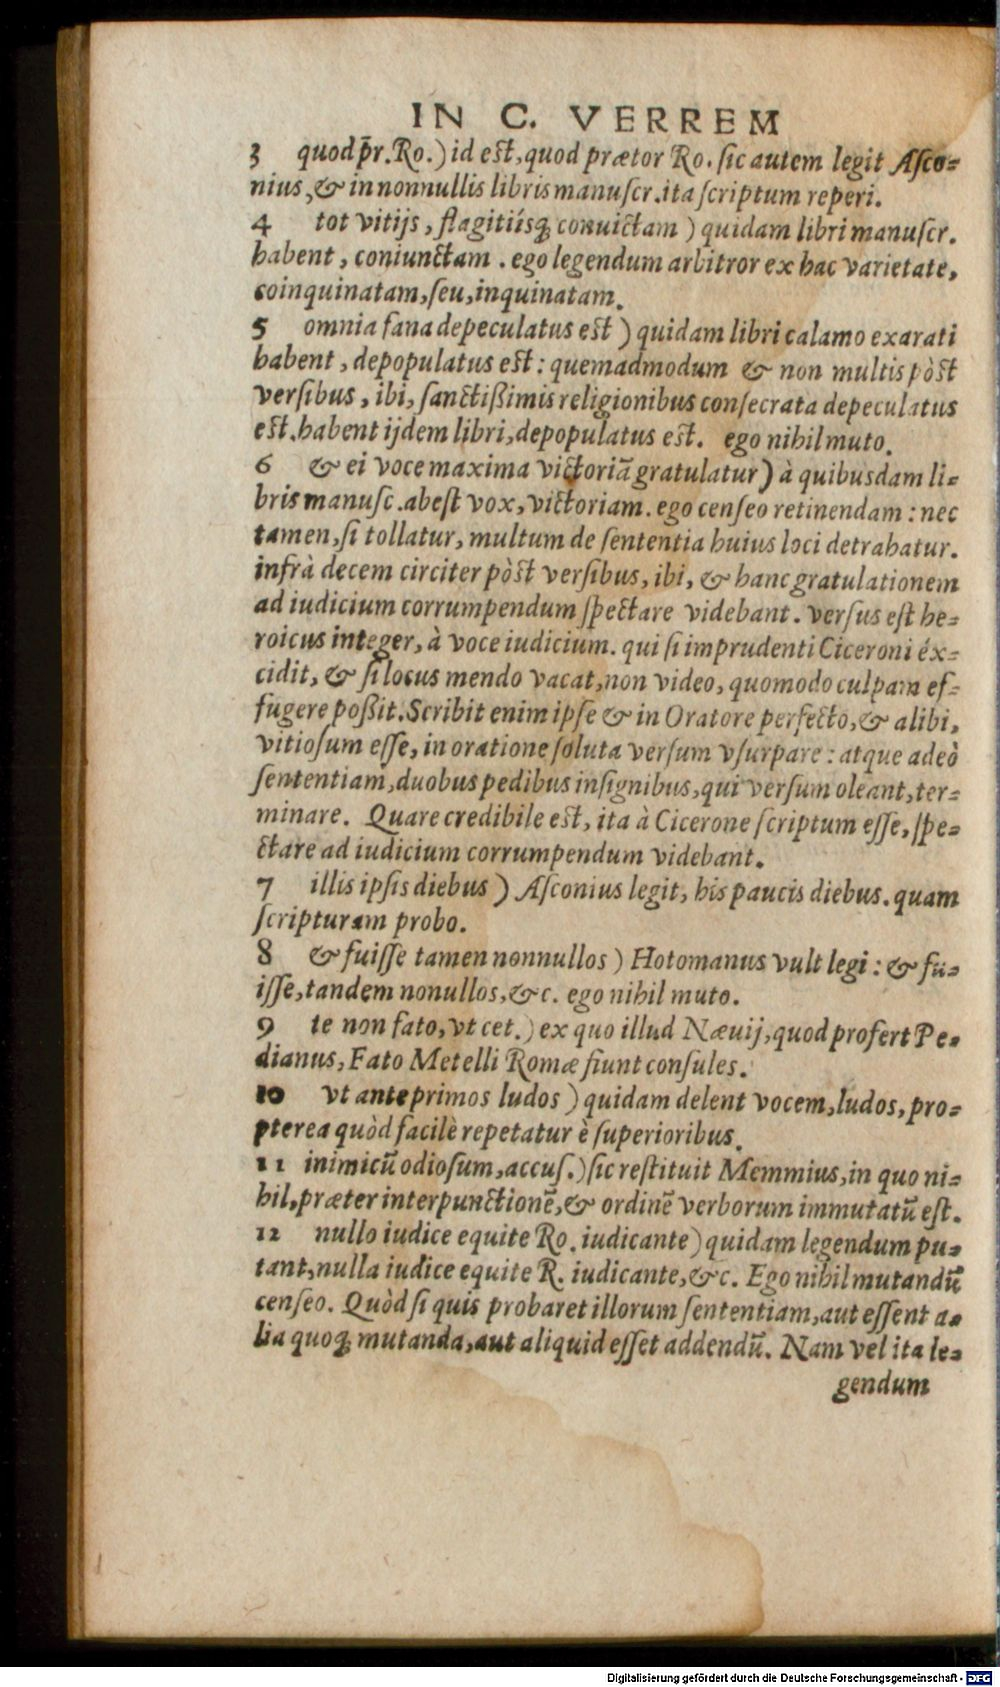 IN C. VERREM
3 quod p̄r. Ro.) id est, quod prætor Ro. sic autem legit Asco-
nius, & in nonnullis libris manuscr. ita scriptum reperi.
4 tot vitijs, flagitiísq; conuictam) quidam libri manuscr.
habent, coniunctam. ego legendum arbitror ex hac varietate,
coinquinatam, seu, inquinatam.
5 omnia fana depeculatus est) quidam libri calamo exarati
habent, depopulatus est: quemadmodum & non multis pòst
versibus, ibi, sanctißimis religionibus consecrata depeculatus
est. habent ijdem libri, depopulatus est. ego nihil muto.
6 & ei voce maxima victoriā gratulatur) à quibusdam li-
bris manusc. abest vox, victoriam. ego censeo retinendam: nec
tamen, si tollatur, multum de sententia huius loci detrahatur.
infrà decem circiter pòst versibus, ibi, & hanc gratulationem
ad iudicium corrumpendum spectare videbant. versus est he-
roicus integer, à voce iudicium. qui si imprudenti Ciceroni éx-
cidit, & si locus mendo vacat, non video, quomodo culpam ef-
fugere poßit. Scribit enim ipse & in Oratore perfecto, & alibi,
vitiosum esse, in oratione soluta versum vsurpare: atque adeò
sententiam, duobus pedibus insignibus, qui versum oleant, ter-
minare. Quare credibile est, ita à Cicerone scriptum esse, spe-
ctare ad iudicium corrumpendum videbant.
7 illis ipsis diebus) Asconius legit, his paucis diebus. quam
scripturam probo.
8 & fuisse tamen nonnullos) Hotomanus vult legi: & fu-
isse, tandem nonullos, &c. ego nihil muto.
9 te non fato, vt cet.) ex quo illud Næuij, quod profert Pe-
dianus, Fato Metelli Romæ fiunt consules.
10 vt ante primos ludos) quidam delent vocem, ludos, pro-
pterea quòd facilè repetatur è superioribus.
11 inimicū odiosum, accus.) sic restituit Memmius, in quo ni-
hil, præter interpunctionē, & ordinē verborum immutatū est.
12 nullo iudice equite Ro. iudicante) quidam legendum pu-
tant, nulla iudice equite R. iudicante, &c. Ego nihil mutandū
censeo. Quòd si quis probaret illorum sententiam, aut essent a-
lia quoq; mutanda, aut aliquid esset addendū. Nam vel ita le-
gendum
Digitalisierung gefördert durch die Deutsche Forschungsgemeinschaft - DFG